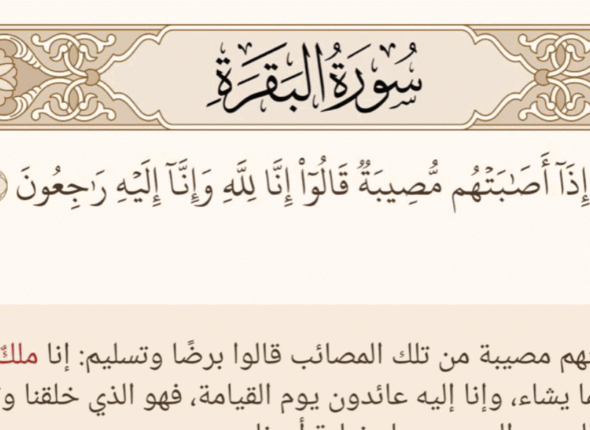 سُورَةُ البَقَرَةِ
إِذَآ أَصَٰبَتْهُم مُّصِيبَةٌ قَالُوٓا۟ إِنَّا لِلَّهِ وَإِنَّآ إِلَيْهِ رَٰجِعُونَ
مصيبة من تلك المصائب قالوا برضًا وتسليم: إنا ملك
يشاء، وإنا إليه عائدون يوم القيامة، فهو الذي خلقنا